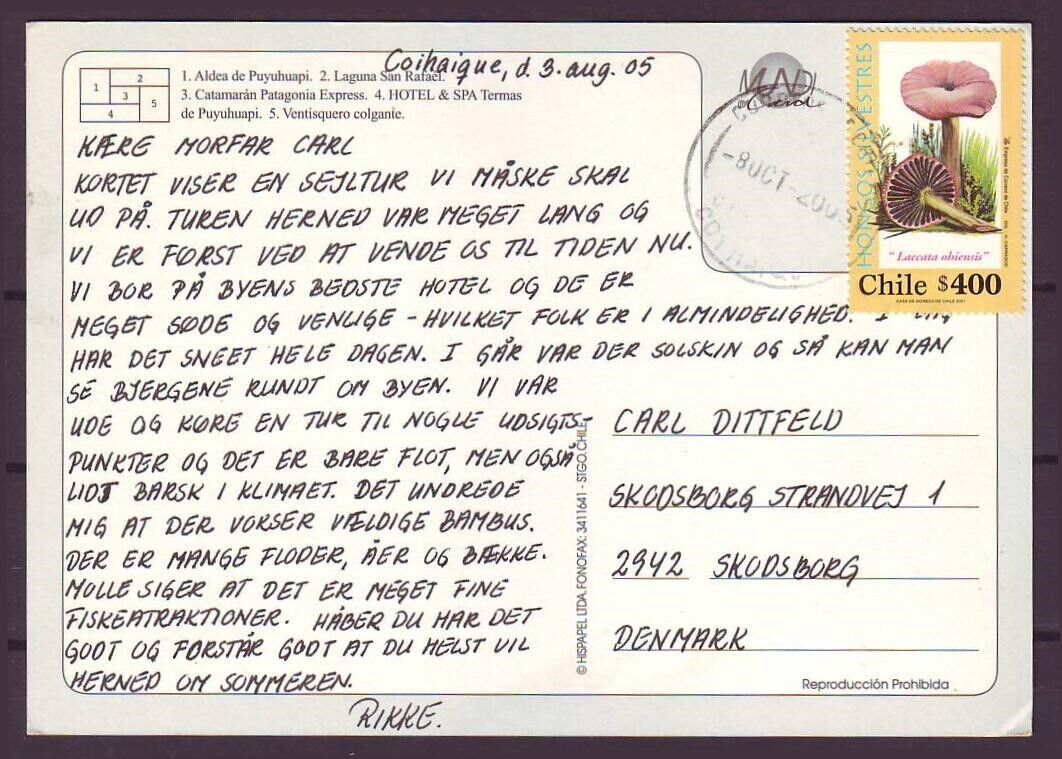 Coihaique, d. 3. aug. 05
1 2 3 4 5
1. Aldea de Puyuhuapi. 2. Laguna San Rafael.
3. Catamarán Patagonia Express. 4. HOTEL & SPA Termas
de Puyuhuapi. 5. Ventisquero colgante.
KÆRE MORFAR CARL
KORTET VISER EN SEJLTUR VI MÅSKE SKAL
UD PÅ. TUREN HERNED VAR MEGET LANG OG
VI ER FØRST VED AT VENDE OS TIL TIDEN NU.
VI BOR PÅ BYENS BEDSTE HOTEL OG DE ER
MEGET SØDE OG VENLIGE - HVILKET FOLK ER I ALMINDELIGHED. I
HAR DET SNEET HELE DAGEN. I GÅR VAR DER SOLSKIN OG SÅ KAN MAN
SE BJERGENE RUNDT OM BYEN. VI VAR
UDE OG KØRE EN TUR TIL NOGLE UDSIGTS-
PUNKTER OG DET ER BARE FLOT, MEN OGSÅ
LIDT BARSK I KLIMAET. DET UNDREDE
MIG AT DER VORSER VÆLDIGE BAMBUS.
DER ER MANGE FLODER, ÅER OG BÆKKE.
MOLLE SIGER AT DET ER MEGET FINE
FISKEATRAKTIONER. HÅBER DU HAR DET
GODT OG FORSTÅR GODT AT DU HELST VIL
HERNED OM SOMMEREN.
RIKKE.
© HISPAPEL LTDA. FONOFAX: 3411641 - STGO. CHILE
-8 OCT-2005
HONGOS SILVESTRES
"Laccata ohiensis"
Chile $400
CASA DE MONEDA DE CHILE 2001
CARL DITTFELD
SKODSBORG STRANDVEJ 1
2942 SKODSBORG
DENMARK
Reproducción Prohibida